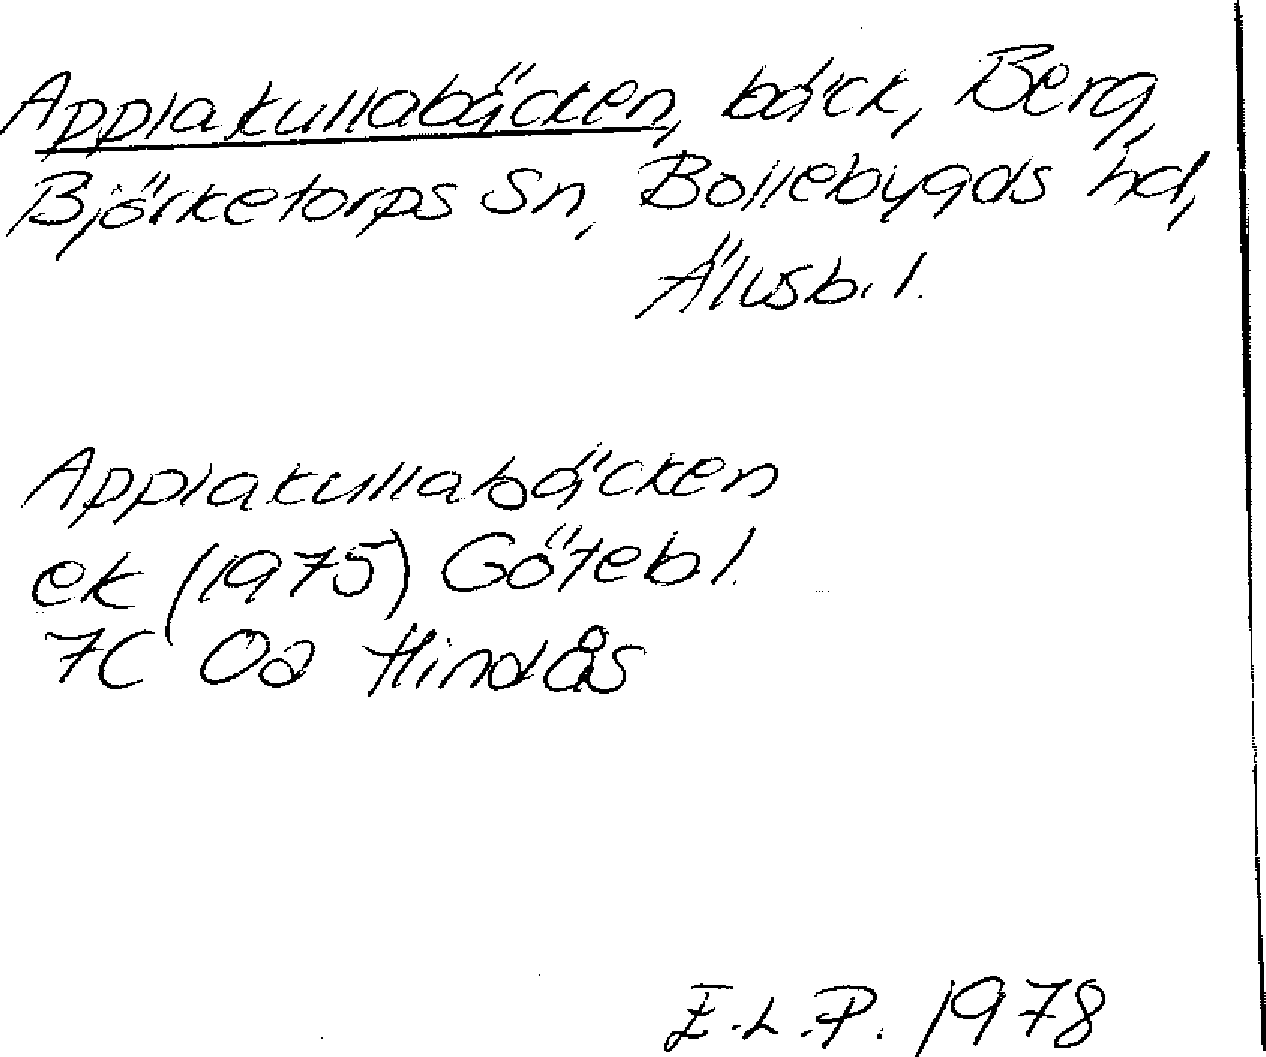 Applakullabäcken, bäck, Berg,
Björketorps Sn, Bollebygds hd,
Älvsb. l.
Applakullabäcken
ek (1975) Göteb l.
7C 0a Hindås
E.L.P. 1978